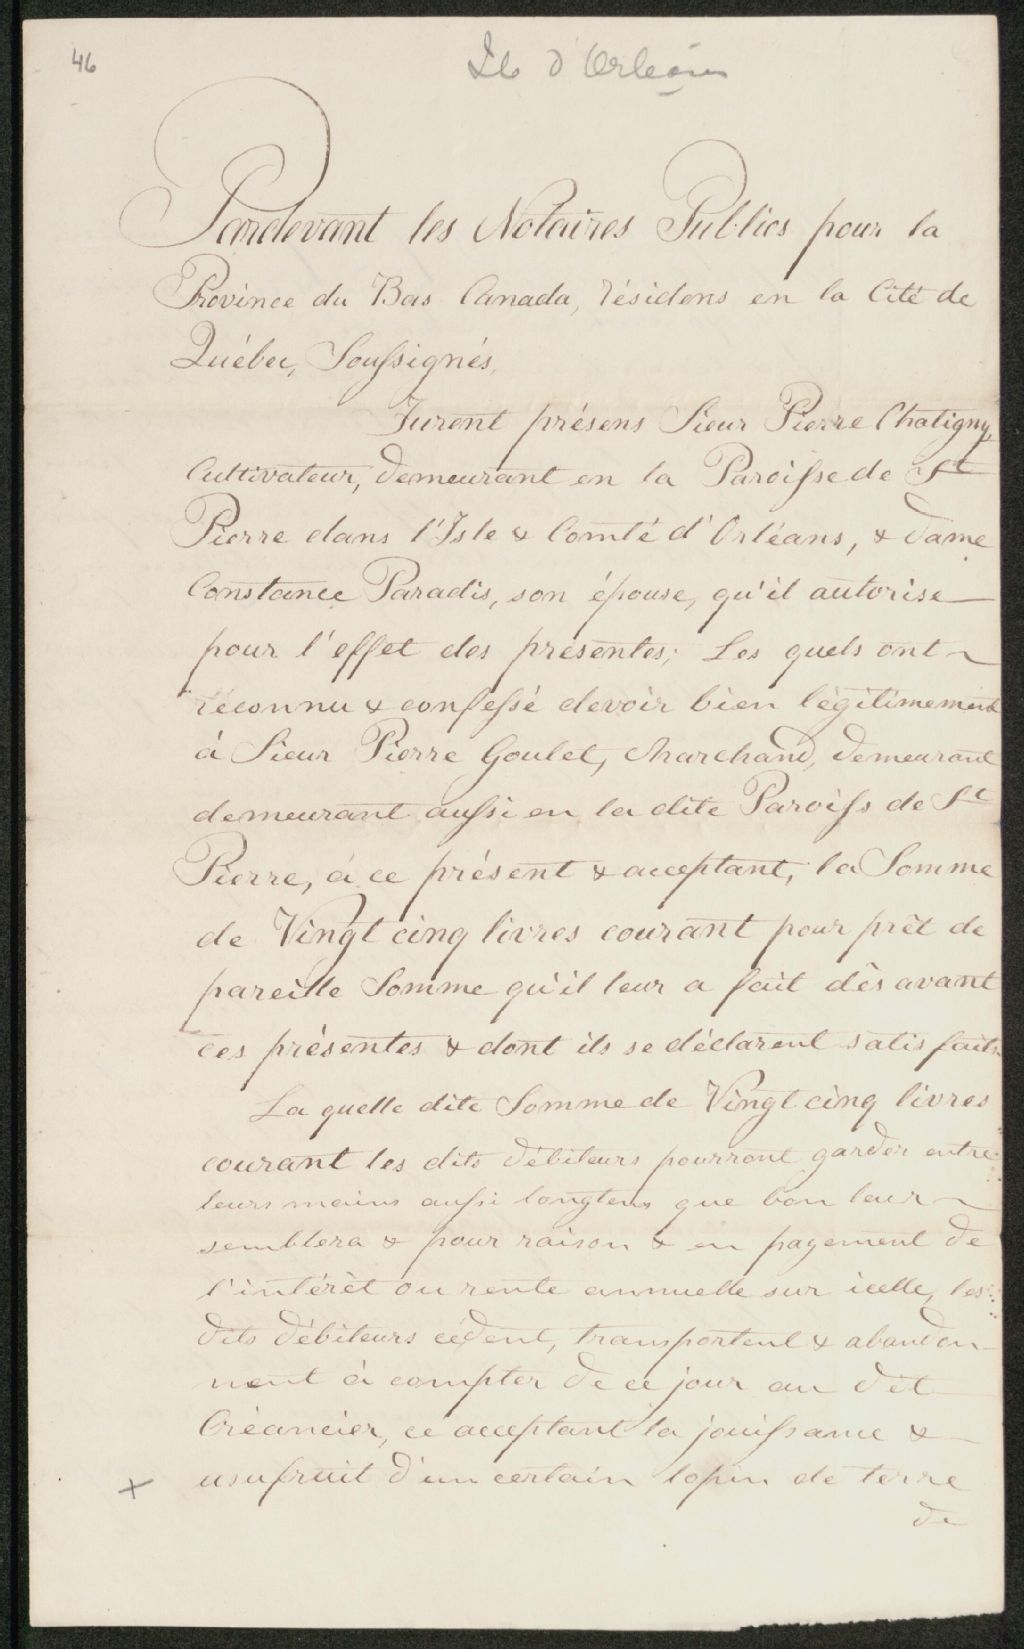 46
Ile d'Orléans
Pardevant les Notaires Publics pour la
Province du Bas Canada, résidens en la Cité de
Québec, Soussignés,
Furent présens Sieur Pierre Chatigny,
Cultivateur, demeurant en la Paroisse de St
Pierre dans l'Isle & Comté d'Orléans, & dame
Constance Paradis, son épouse, qu'il autorise
pour l'effet des présentes; Les quels ont
réconnu & confessé devoir bien légitimement
à Sieur Pierre Goulet, Marchand, demeurant
demeurant aussi en la dite Paroiss de St
Pierre, à ce présent & acceptant, la Somme
de Vingt cinq livres courant pour prêt de
pareille Somme qu'il leur a fait dès avant
ces présentes & dont ils se déclarent satisfaits
La quelle dite Somme de Vingt cinq livres
courant les dits débiteurs pourront garder entre
leurs mains aussi longtems que bon leur
semblera & pour raison & en payement de
l'intérêt ou rente annuelle sur icelle, les
dits débiteurs cèdent, transportent & abandon-
nent à compter de ce jour au dit
Créancier, ce acceptant la jouissance &
usufruit d'un certain lopin de terre
de